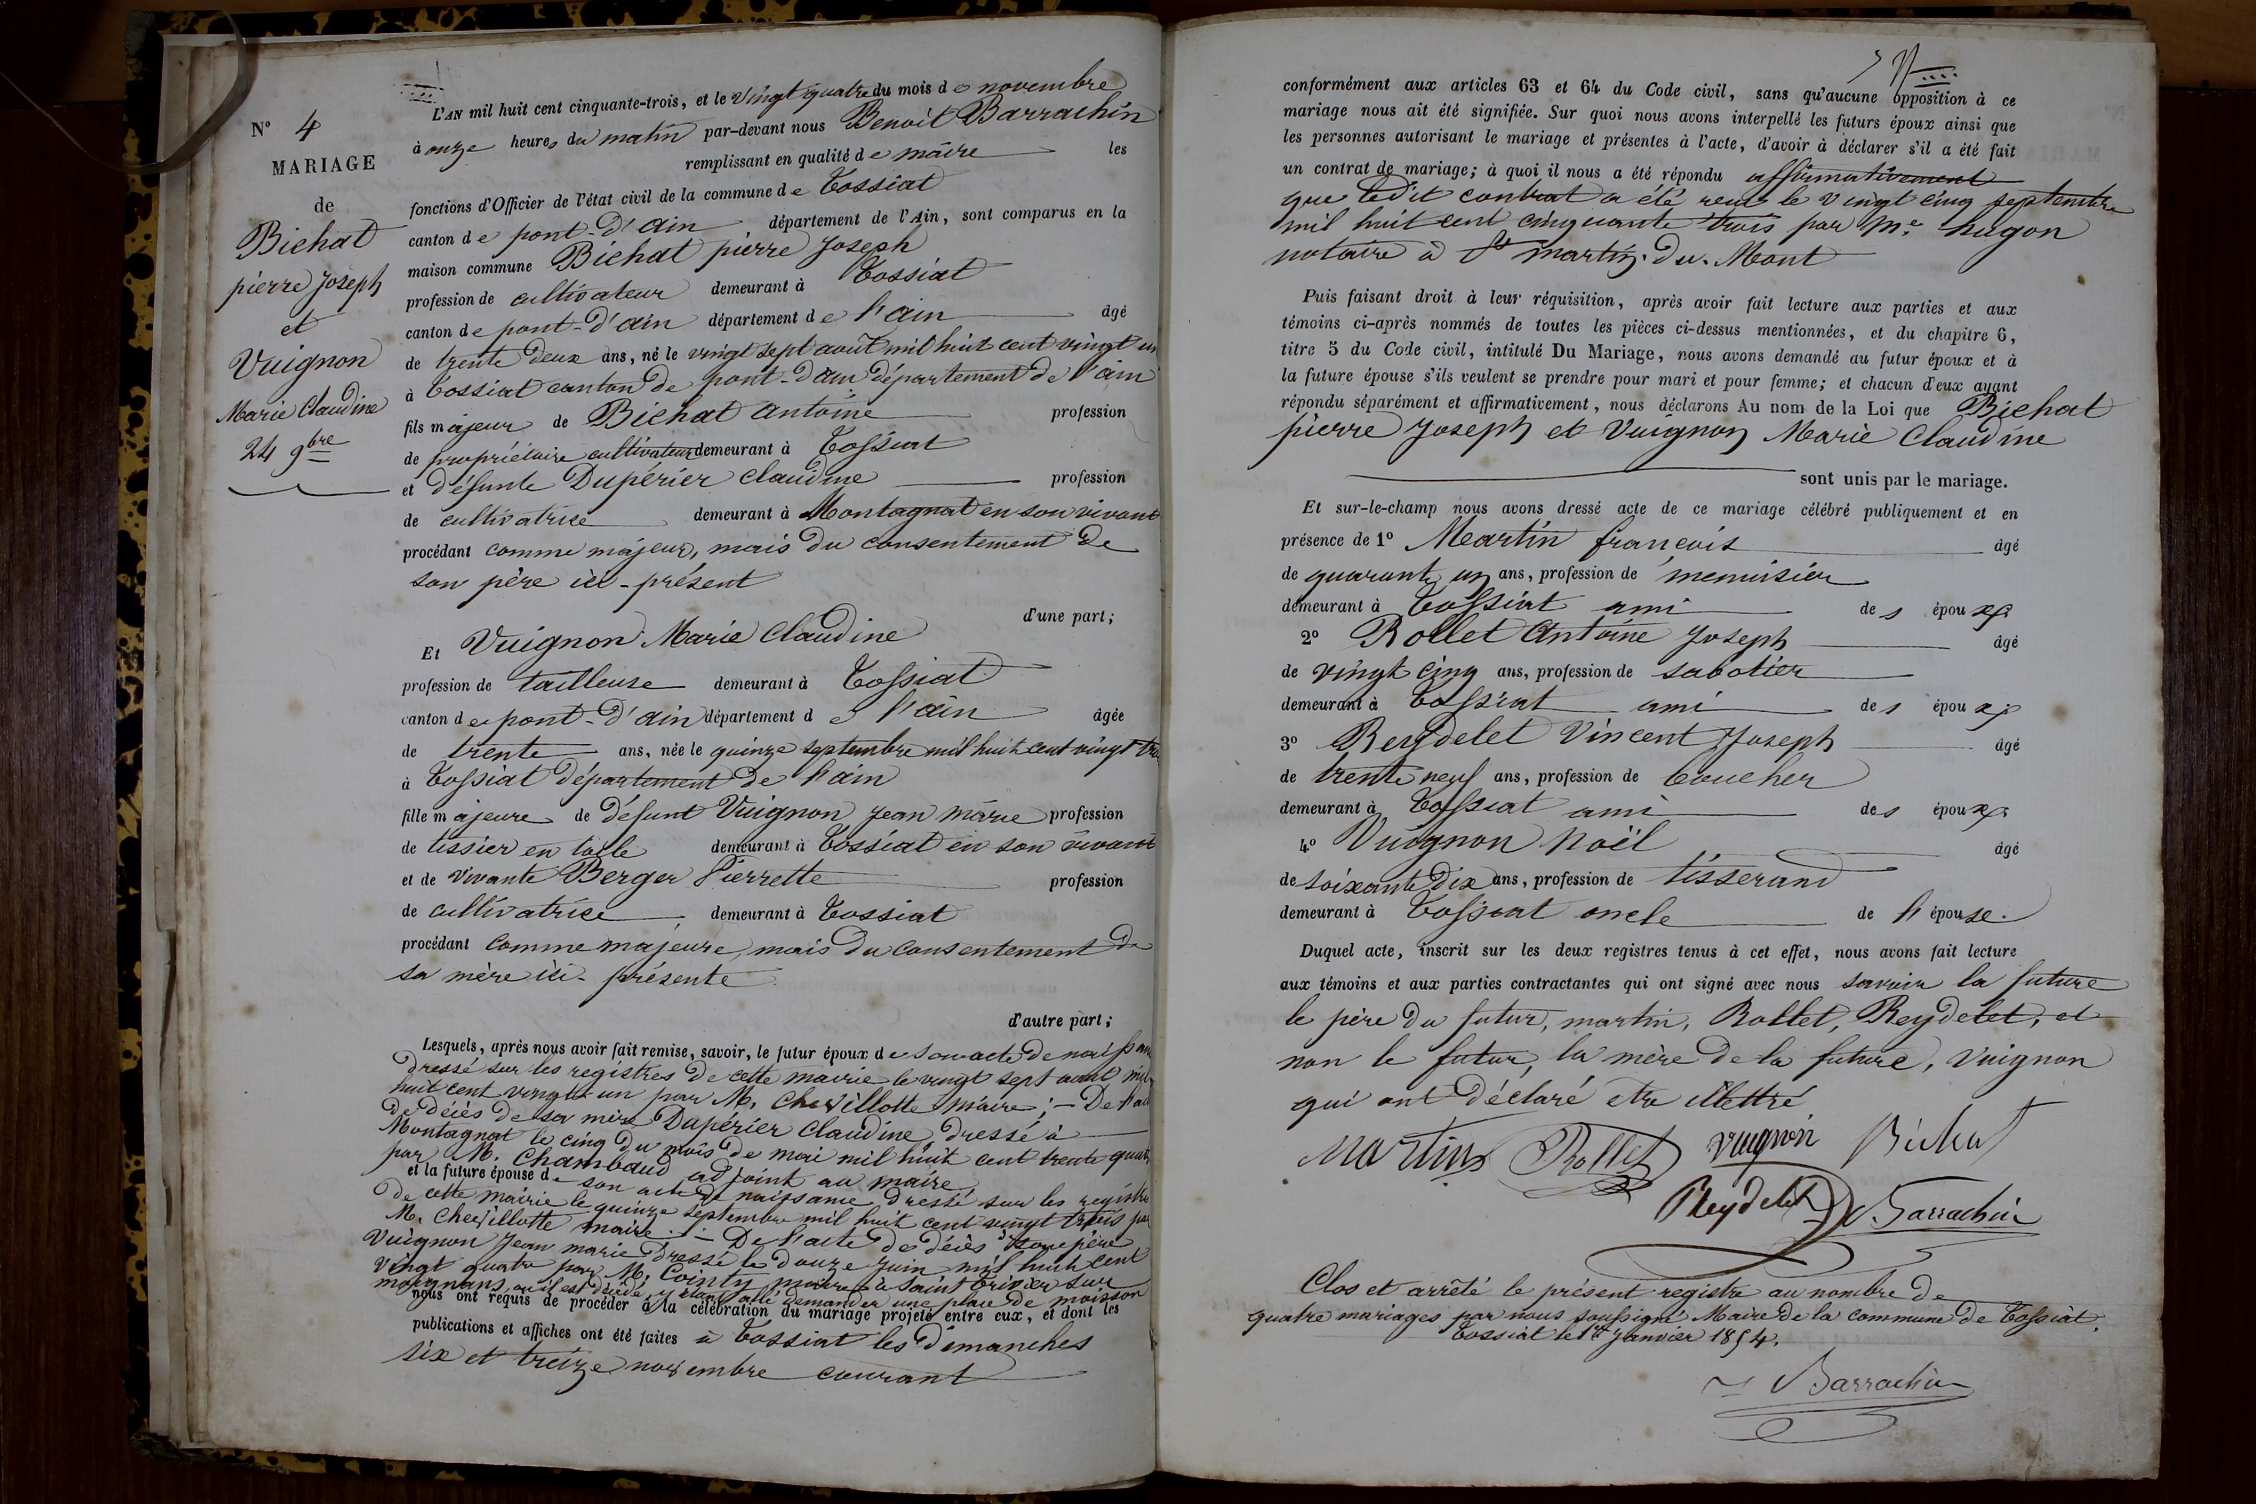 N° 4
MARIAGE
de
Bichat
pierre Joseph
et
Vuignon
Marie Claudine
24 9bre
L'AN mil huit cent cinquante-trois, et le vingt quatre du mois de novembre
à onze heures du matin par-devant nous Benoît Barrachin
remplissant en qualité de maire les
fonctions d'Officier de l'état civil de la commune de Tossiat
canton de pont-d'ain département de l'Ain, sont comparus en la
maison commune Bichat pierre Joseph
profession de cultivateur demeurant à Tossiat
canton de pont-d'ain département de l'ain âgé
de trente deux ans, né le vingt sept août mil huit cent vingt un
à Tossiat canton de pont-d'ain département de l'ain
fils majeur de Bichat antoine profession
de propriétaire cultivateur demeurant à Tossiat
et défunte Dupérier claudine profession
de cultivatrice demeurant à Montagnat en son vivant
procédant comme majeur, mais du consentement de
son père ici-présent
d'une part;
Et Vuignon Marie Claudine
profession de tailleuse demeurant à Tossiat
canton de pont-d'ain département de l'ain âgée
de trente ans, née le quinze septembre mil huit cent vingt
à Tossiat département de l'ain
fille majeure de défunt Vuignon jean marie profession
de tissier en toile demeurant à Tossiat en son vivant
et de vivante Berger Pierrette profession
de cultivatrice demeurant à Tossiat
procédant comme majeure, mais du consentement de
sa mère ici-présente
d'autre part;
Lesquels, après nous avoir fait remise, savoir, le futur époux de son acte de
dressé sur les registres de cette mairie le vingt sept aout mil
huit cent vingt-un par M. Chevillotte maire; - De
de décès de sa mère Dupérier claudine, dressé à
Montagnat le cinq du mois de mai mil huit cent trente
par M. Chambaud adjoint au maire
et la future épouse de son acte de naissance dressé sur les
de cette mairie le quinze septembre mil huit cent vingt trois par
M. Chevillotte maire. - De l'acte de décès de son père
Vuignon Jean marie dressé le douze juin mil huit cent
vingt quatre par M. Cointy maire à Saint trivier sur
moignans, où il est décédé, y étant allé demander une place de moisson
nous ont requis de procéder à la célébration du mariage projeté entre eux, et dont les
publications et affiches ont été faites à Tossiat les dimanches
six et treize novembre courant
conformément aux articles 63 et 64 du Code civil, sans qu'aucune opposition à ce
mariage nous ait été signifiée. Sur quoi nous avons interpellé les futurs époux ainsi que
les personnes autorisant le mariage et présentes à l'acte, d'avoir à déclarer s'il a été fait
un contrat de mariage; à quoi il nous a été répondu affirmativement
que ledit contrat a été reçu le vingt cinq septembre
mil huit cent cinquante trois par Me hugon
notaire à St martin-du-Mont
Puis faisant droit à leur réquisition, après avoir fait lecture aux parties et aux
témoins ci-après nommés de toutes les pièces ci-dessus mentionnées, et du chapitre 6,
titre 5 du Code civil, intitulé Du Mariage, nous avons demandé au futur époux et à
la future épouse s'ils veulent se prendre pour mari et pour femme; et chacun d'eux ayant
répondu séparément et affirmativement, nous déclarons Au nom de la Loi que Bichat
pierre Joseph et Vuignon Marie Claudine
sont unis par le mariage.
Et sur-le-champ nous avons dressé acte de ce mariage célébré publiquement et en
présence de 1° Martin françois âgé
de quarante un ans, profession de menuisier
demeurant à Tossiat ami des époux
2° Rollet Antoine Joseph âgé
de vingt cinq ans, profession de sabotier
demeurant à Tossiat ami des époux
3° Reydelet Vincent Joseph âgé
de trente neuf ans, profession de boucher
demeurant à Tossiat ami des époux
4° Vuignon Noël âgé
de soixante dix ans, profession de tisserand
demeurant à Tossiat oncle de l'épouse.
Duquel acte, inscrit sur les deux registres tenus à cet effet, nous avons fait lecture
aux témoins et aux parties contractantes qui ont signé avec nous savoir la future
le père du futur, martin, Rollet, Reydelet, et
non le futur, la mère de la future, Vuignon
qui ont déclaré etre illettré
Martin Rollet Vuignon Bichat
Reydelet Barrachin
Clos et arrêté le présent registre au nombre de
quatre mariages par nous soussigné Maire de la commune de Tossiat.
Tossiat le 1er Janvier 1854.
Barrachin